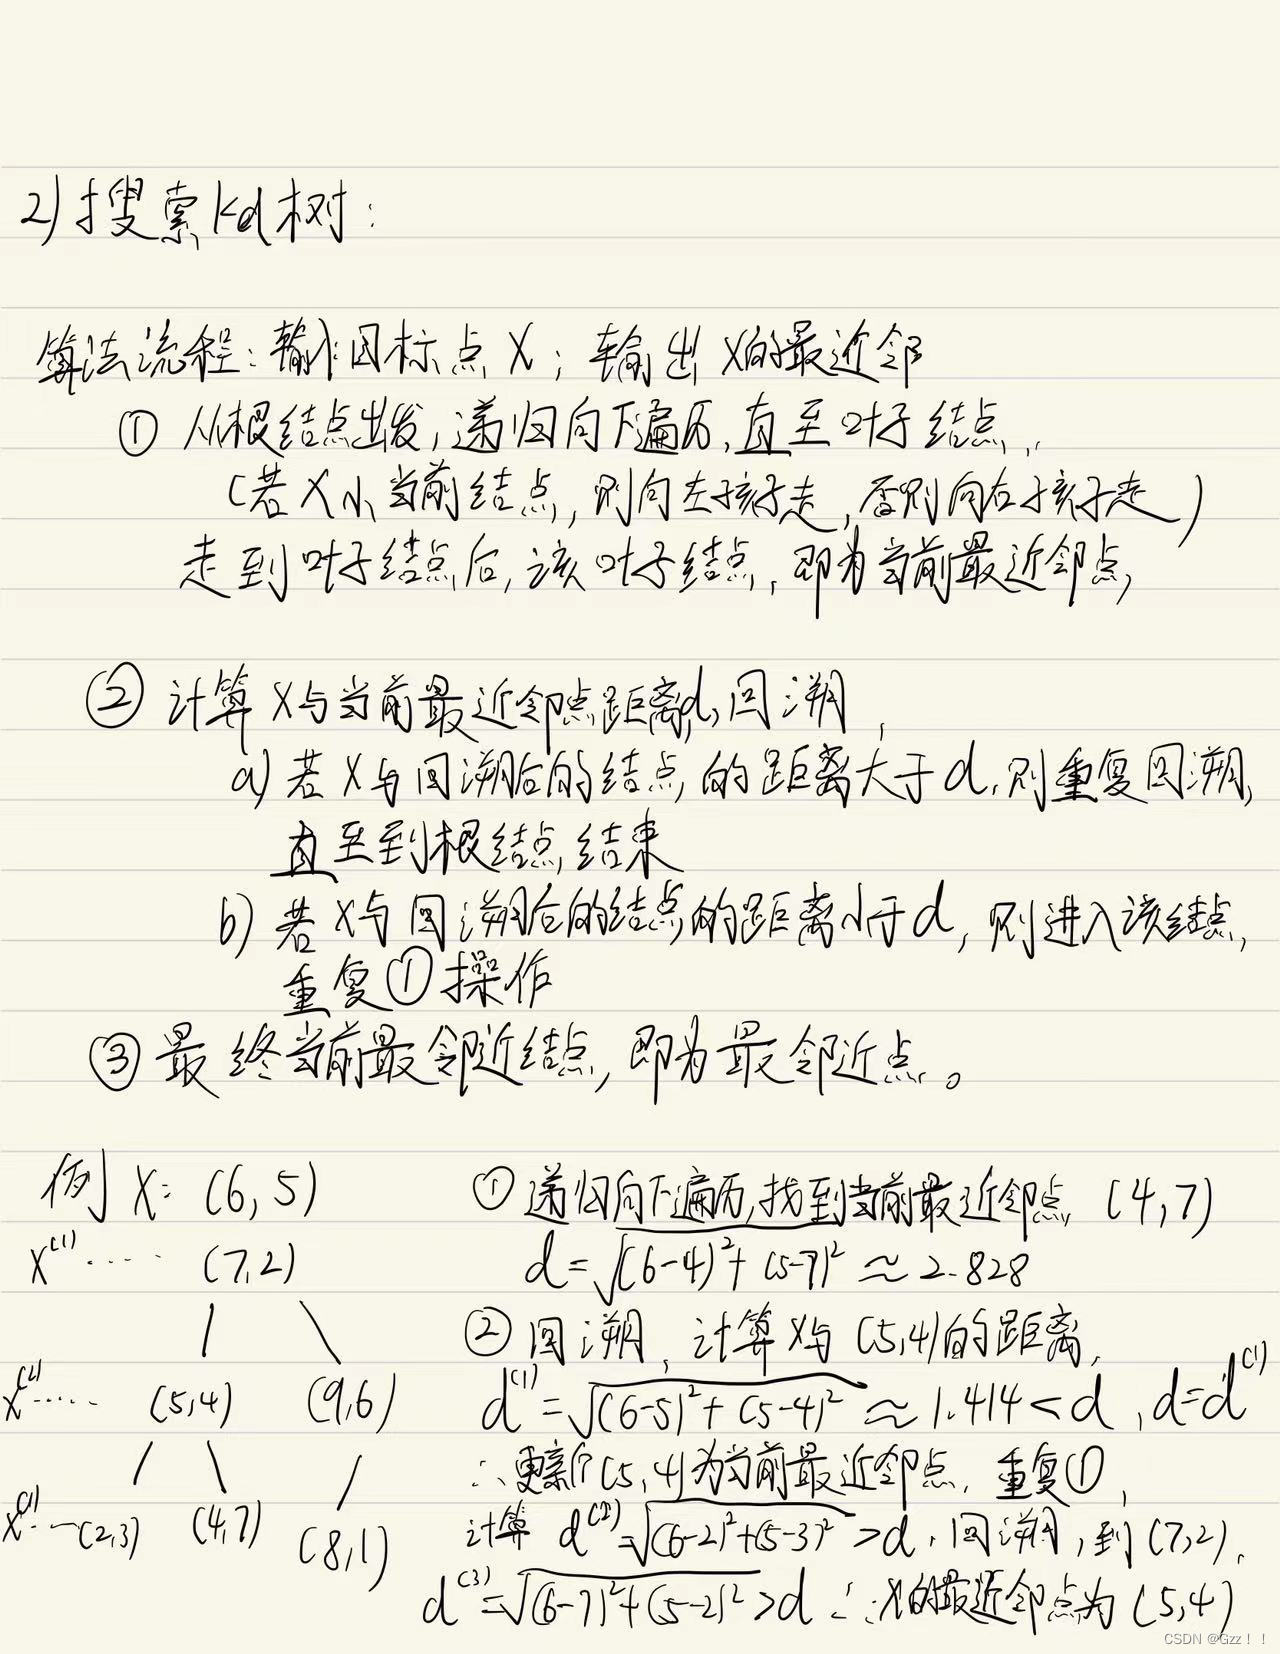 2) 搜索kd树:
算法流程: 输入目标点 X; 输出 X的最近邻
① 从根结点出发, 递归向下遍历, 直至叶子结点,
(若X小当前结点, 则向左孩子走, 否则向右孩子走)
走到叶子结点后, 该叶子结点, 即为当前最近邻点,
② 计算X与当前最近邻点距离d, 回溯,
a) 若X与回溯后的结点的距离大于d, 则重复回溯,
直至到根结点, 结束
b) 若X与回溯后的结点的距离小于d, 则进入该结点,
重复①操作
③ 最终当前最邻近结点, 即为最邻近点。
例 X: (6,5)
X⁽¹⁾ ···· (7,2)
X⁽²⁾ ···· (5,4) (9,6)
X⁽³⁾ ··· (2,3) (4,7) (8,1)
① 递归向下遍历, 找到当前最近邻点 (4,7)
d = √(6-4)²+(5-7)² ≈ 2.828
② 回溯, 计算X与(5,4)的距离,
d⁽¹⁾ = √(6-5)²+(5-4)² ≈ 1.414 < d, d=d⁽¹⁾
∴ 更新 (5,4)为当前最近邻点, 重复①,
计算 d⁽²⁾=√(6-2)²+(5-3)² > d, 回溯, 到(7,2),
d⁽³⁾=√(6-7)²+(5-2)² > d ∴ X的最近邻点为 (5,4)
CSDN @Gzz！！